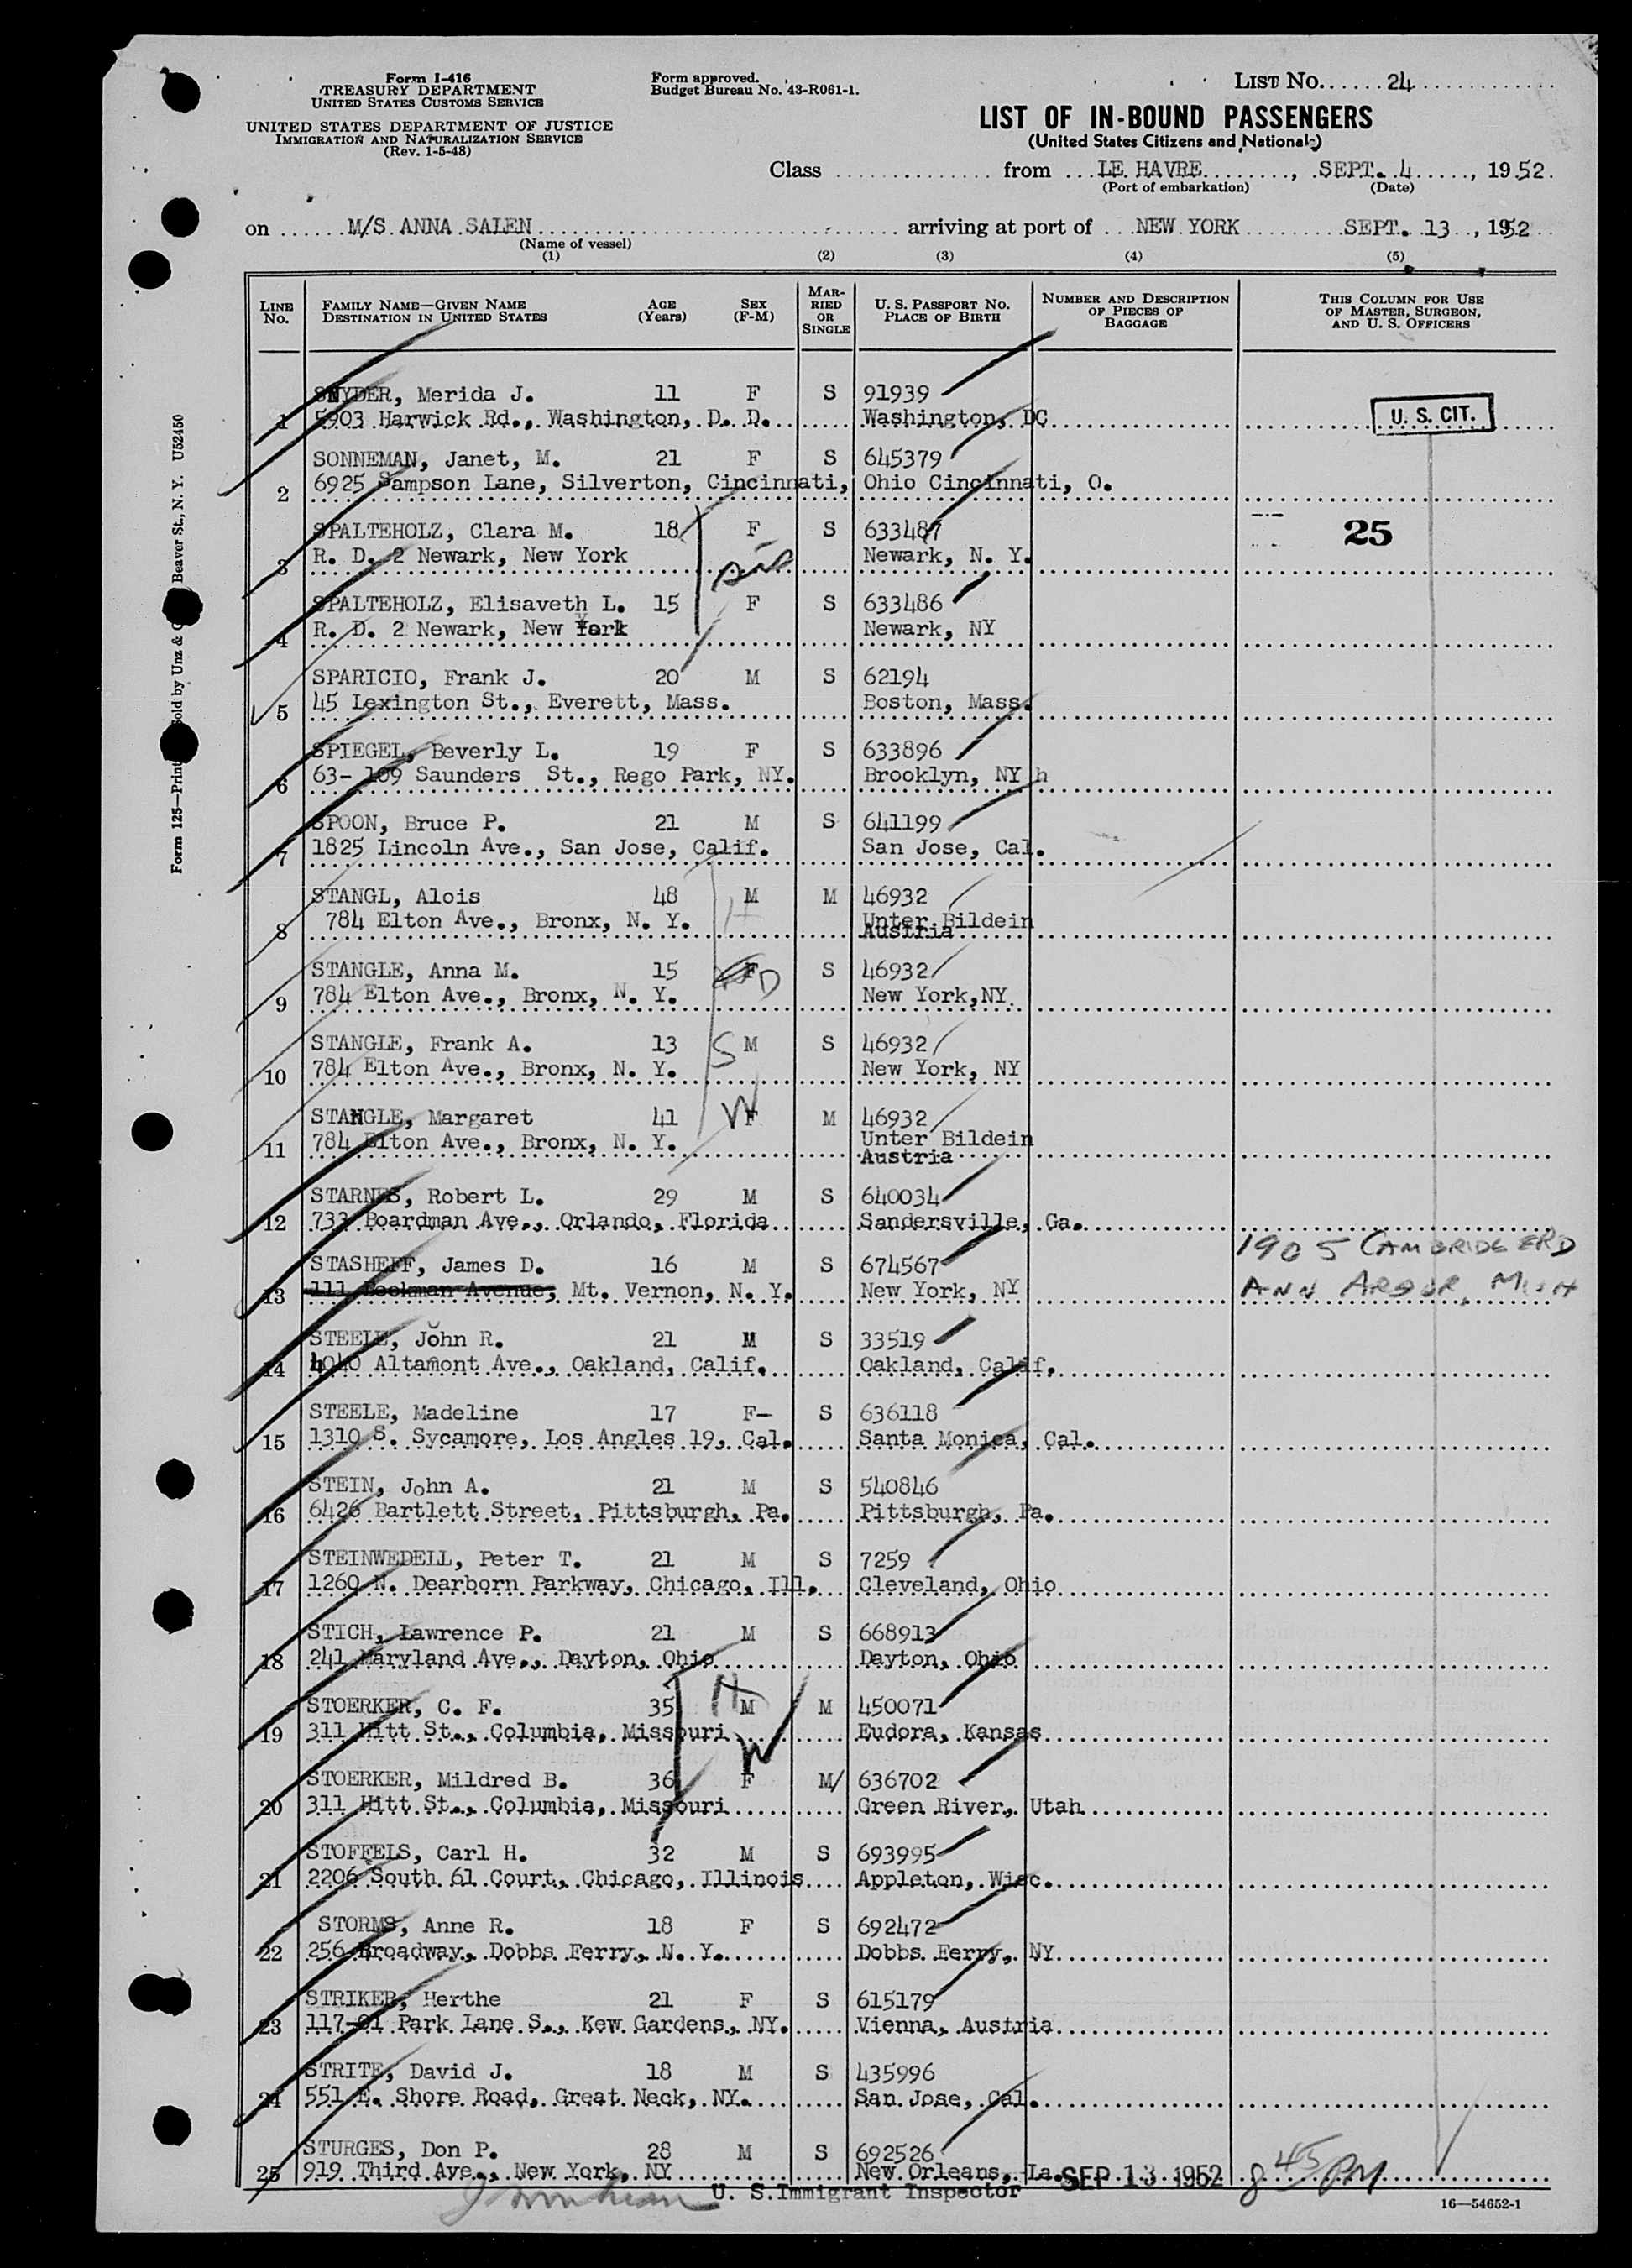 Form I-416
TREASURY DEPARTMENT
UNITED STATES CUSTOMS SERVICE
UNITED STATES DEPARTMENT OF JUSTICE
IMMIGRATION AND NATURALIZATION SERVICE
(Rev. 1-5-48)
Form approved.
Budget Bureau No. 43-R061-1.
LIST NO. 24
LIST OF IN-BOUND PASSENGERS
(United States Citizens and Nationals)
Class from LE HAVRE, SEPT. 4, 1952.
(Port of embarkation) (Date)
on M/S ANNA SALEN arriving at port of NEW YORK SEPT. 13, 1952
(Name of vessel)
(1) (2) (3) (4) (5)
LINE No. FAMILY NAME—GIVEN NAME DESTINATION IN UNITED STATES AGE (Years) SEX (F-M) MARRIED OR SINGLE U. S. PASSPORT NO. PLACE OF BIRTH NUMBER AND DESCRIPTION OF PIECES OF BAGGAGE THIS COLUMN FOR USE OF MASTER, SURGEON, AND U. S. OFFICERS
SNYDER, Merida J. 11 F S 91939
1 5903 Harwick Rd., Washington, D. D. Washington, DC U. S. CIT.
SONNEMAN, Janet, M. 21 F S 645379
2 6925 Sampson Lane, Silverton, Cincinnati, Ohio Cincinnati, O.
SPALTEHOLZ, Clara M. 18 F S 633487 25
3 R. D. 2 Newark, New York sis Newark, N. Y.
SPALTEHOLZ, Elisaveth L. 15 F S 633486
4 R. D. 2 Newark, New York Newark, NY
SPARICIO, Frank J. 20 M S 62194
5 45 Lexington St., Everett, Mass. Boston, Mass.
SPIEGEL, Beverly L. 19 F S 633896
6 63- 109 Saunders St., Rego Park, NY. Brooklyn, NY h
SPOON, Bruce P. 21 M S 641199
7 1825 Lincoln Ave., San Jose, Calif. San Jose, Cal.
STANGL, Alois 48 M M 46932
8 784 Elton Ave., Bronx, N. Y. H Unter Bildein
Austria
STANGLE, Anna M. 15 F D S 46932
9 784 Elton Ave., Bronx, N. Y. New York,NY.
STANGLE, Frank A. 13 S M S 46932
10 784 Elton Ave., Bronx, N. Y. New York, NY
STANGLE, Margaret 41 W F M 46932
11 784 Elton Ave., Bronx, N. Y. Unter Bildein
Austria
STARNES, Robert L. 29 M S 640034
12 733 Boardman Ave., Orlando, Florida Sandersville, Ga.
1905 CAMBRIDGE RD
STASHEFF, James D. 16 M S 674567
13 111 Bockman Avenue, Mt. Vernon, N. Y. New York, NY ANN ARBOR, MICH
STEELE, John R. 21 M S 33519
14 4040 Altamont Ave., Oakland, Calif. Oakland, Calif.
STEELE, Madeline 17 F- S 636118
15 1310 S. Sycamore, Los Angles 19, Cal. Santa Monica, Cal.
STEIN, John A. 21 M S 540846
16 6426 Bartlett Street, Pittsburgh, Pa. Pittsburgh, Pa.
STEINWEDELL, Peter T. 21 M S 7259
17 1260 N. Dearborn Parkway, Chicago, Ill. Cleveland, Ohio
STICH, Lawrence P. 21 M S 668913
18 241 Maryland Ave., Dayton, Ohio Dayton, Ohio
STOERKER, C. F. 35 H M M 450071
19 311 Hitt St., Columbia, Missouri W Eudora, Kansas
STOERKER, Mildred B. 36 F M/ 636702
20 311 Hitt St., Columbia, Missouri Green River, Utah
STOFFELS, Carl H. 32 M S 693995
21 2206 South 61 Court, Chicago, Illinois Appleton, Wisc.
STORMS, Anne R. 18 F S 692472
22 256 Broadway, Dobbs Ferry, N. Y. Dobbs Ferry, NY
STRIKER, Herthe 21 F S 615179
23 117-01 Park Lane S., Kew Gardens, NY. Vienna, Austria
STRITE, David J. 18 M S 435996
24 551 E. Shore Road, Great Neck, NY. San Jose, Cal.
STURGES, Don P. 28 M S 692526
25 919 Third Ave., New York, NY New Orleans, La. SEP 13 1952 8 45 PM
U. S. Immigrant Inspector
16—54652-1
Form 125—Print Sold by Unz & C Beaver St., N. Y. U52450